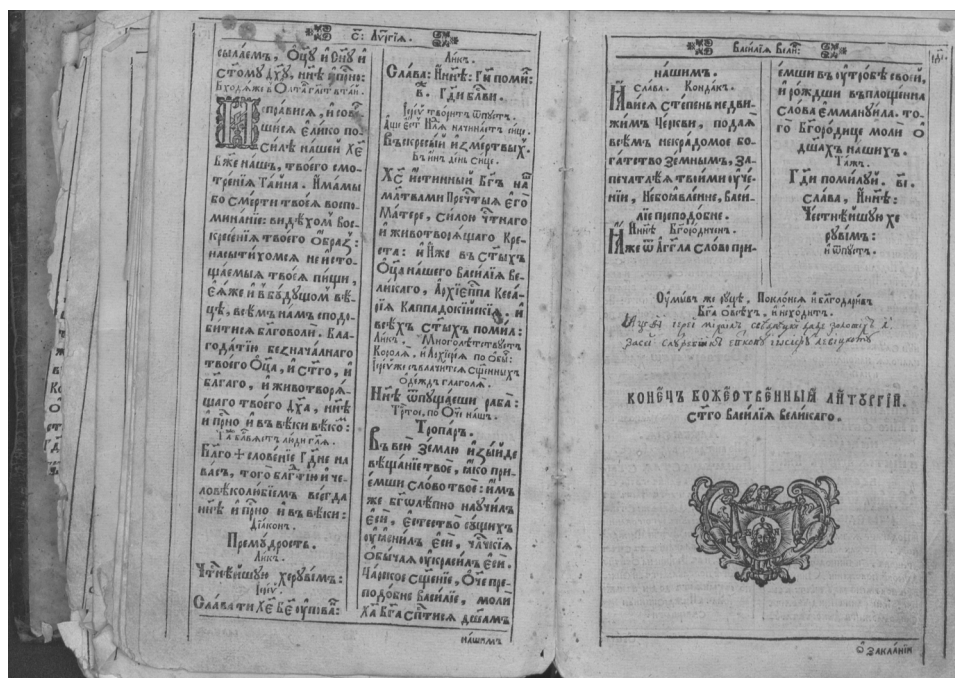 С҃: Лꙋ҆ргі́а.
сыла́емъ, Ѻ҆ц҃ꙋ и҆ Сн҃ꙋ и҆
Ст҃омꙋ Дх҃ꙋ, ни҃нѣ и҆ при҃о:
И҆спра́висѧ, и҆ сов
ши́сѧ Е҆ли́ко по
си́лѣ на́шей Хе҃
Бж҃е на́шъ, твоего̀ смо
тре́нїѧ Та́йна. И҆́мамы
бо сме́рти твоеѧ̀ воспо
мина́нїе: ви́дѣхомъ Вос
кресе́нїѧ твоегѡ̀ Ѻ҆́браꙁ:
насы́тихомсѧ неисто
ща́емыѧ твоеѧ̀ пи́щи,
Е҆ѧ́же и҆ въ бꙋ́дꙋщомъ вѣ
цѣ, всѣ́мъ на́мъ сподо
би́тисѧ бл҃говоли̂. Бла
года́тїю беꙁнача́лнаго
твоегѡ̀ Ѻ҆ц҃а, и҆ ст҃го, и҆
бл҃га́го, и҆ животворѧ́
щаго твоегѡ̀ Дх҃а, ни҃нѣ
и҆ при҃о и҆ въ вѣ́ки вѣ́кѡ:
Бл҃го + слове́нїе Гд҃не на
ва́съ, тогѡ̀ бл҃гтїю и҆ че
ловѣколю́бїемъ всегда̀
ни҃нѣ и҆ при҃о и҆ въ вѣ́ки:
Дїа́кон.
Премꙋ́дрость.
Ли́къ.
Чт҃нѣ́йшꙋю херꙋві́мъ:
Іере́ѵ
Сла́ва ти Хе҃ Бж҃е ᲂу҆пова̑:
Ли́къ.
Сла́ва: И҆ ни҃нѣ: Гд҃и поми̑:
в҃. Гд҃и бл҃ви.
Іере́ѵ твори́тъ ѿпꙋ́стъ.
Въскре́сый и҆ꙁ ме́ртвыхъ.
Въ и҆́нъ де́нь си́це.
Хс҃ и҆́стинный Бг҃ъ на̑
мл҃твами Пречт҃ыѧ є҆го̀
Ма́тере, си́лою чт҃наго
и҆ животворѧ́щаго Кре
ста̀: и҆ И҆́же въ ст҃ыхъ
Ѻ҆ц҃а на́шего Васи́лїѧ Ве
ли́каго, Архїеп҃па Кеса́
рїѧ Каппадокі́йскїѧ. и҆
всѣ́хъ ст҃ыхъ поми́л:
Ли́къ. Многолѣ́тствꙋетъ
Королѧ̀. и҆ Архїере́ѧ по Ѻ҆бы:
Іере́ѵ же съвлачи́тсѧ сщ҃е́нныхъ
Ѻ҆де́ждъ глаго́лѧ.
Ни҃нѣ ѿпꙋща́еши раба̀:
Трт҃ое, по Ѻ҆́че на́шъ.
Тропа́рь.
Въ всю̀ Зе́млю и҆ꙁы́йде
вѣща́нїе твоѐ, ꙗ҆́ко при
е́мши сло́во твоѐ: и҆́мъ
же бг҃олѣ́пно наꙋчи́лъ
Е҆сѝ, є҆стество̀ сꙋ́щихъ
ᲂу҆ꙗсни́лъ Е҆сѝ, чл҃чскїѧ
Ѻ҆бы́чаѧ ᲂу҆краси́лъ Е҆сѝ.
Ца́рское сщ҃е́нїе, Ѻ҆́че пре
подо́бне Васи́лїе, молѝ
Ха҃ Бг҃а сп҃ти́сѧ дш҃а́мъ
на́шимъ
Васи́лїѧ Вели̑:
на́шимъ.
Сла́ва. Конда́къ.
Ꙗ҆ви́сѧ сте́пень недви́
жимъ Це́ркви, подаѧ̀
всѣ́мъ некра́домое бо
га́тство земны́мъ, ꙁа
печатлѣ́ѧ твои́ми ᲂу҆че́
нїи, Небоꙗвле́нне, Васи́
лїе преподо́бне.
И҆ ни҃нѣ. Бг҃оро́диченъ.
Ꙗ҆́же ѿ А҆́гг҃ла Сло́во при
е́мши въ ᲂу҆тро́бѣ свое́й,
и҆ ро́ждши въплоще́нна
Сло́ва Е҆мманꙋ́ила. то
го̀ Бг҃оро́дице молѝ Ѻ҆
дш҃а́хъ на́шихъ.
Та́ж.
Гд҃и поми́лꙋй. в҃і.
Сла́ва, И҆ ни҃нѣ:
Честнѣ́йшꙋю хе
рꙋві́мъ:
и҆ ѿпꙋ́стъ.
Ѹ҆мы́въ же рꙋ́цѣ. Поклони́сѧ и҆ бл҃годари́въ
Бг҃а Ѻ҆ всѣ́хъ. и҆ и҆схо́дитъ.
КОНЕ́ЧЪ БОЖЕ́СТВЕННЫЙ ЛИТꙊРГІ́Й.
Ст҃го Васи́лїѧ Вели́каго.
Ѻ҆ Закла́нїи